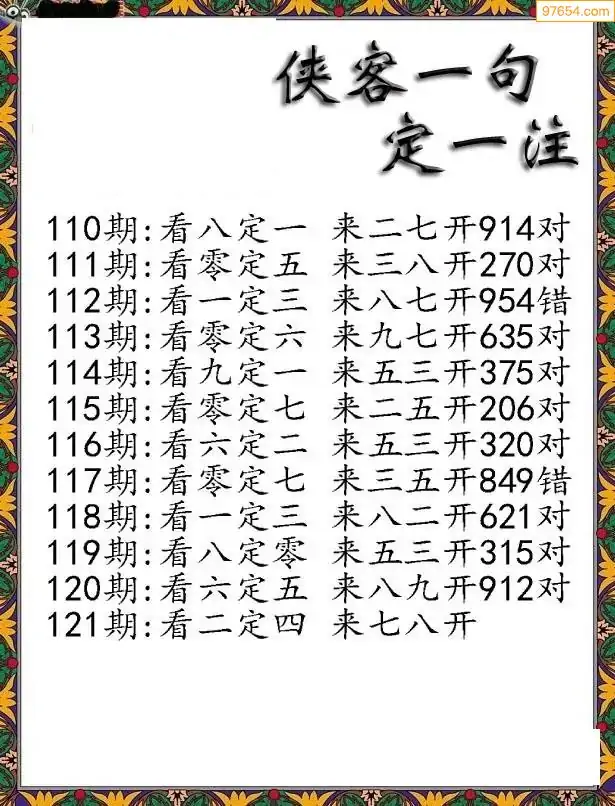 97654.com
侠客一句
定一注
110期:看八定一 来二七开914对
111期:看零定五 来三八开270对
112期:看一定三 来八七开954错
113期:看零定六 来九七开635对
114期:看九定一 来五三开375对
115期:看零定七 来二五开206对
116期:看六定二 来五三开320对
117期:看零定七 来三五开849错
118期:看一定三 来八二开621对
119期:看八定零 来五三开315对
120期:看六定五 来八九开912对
121期:看二定四 来七八开